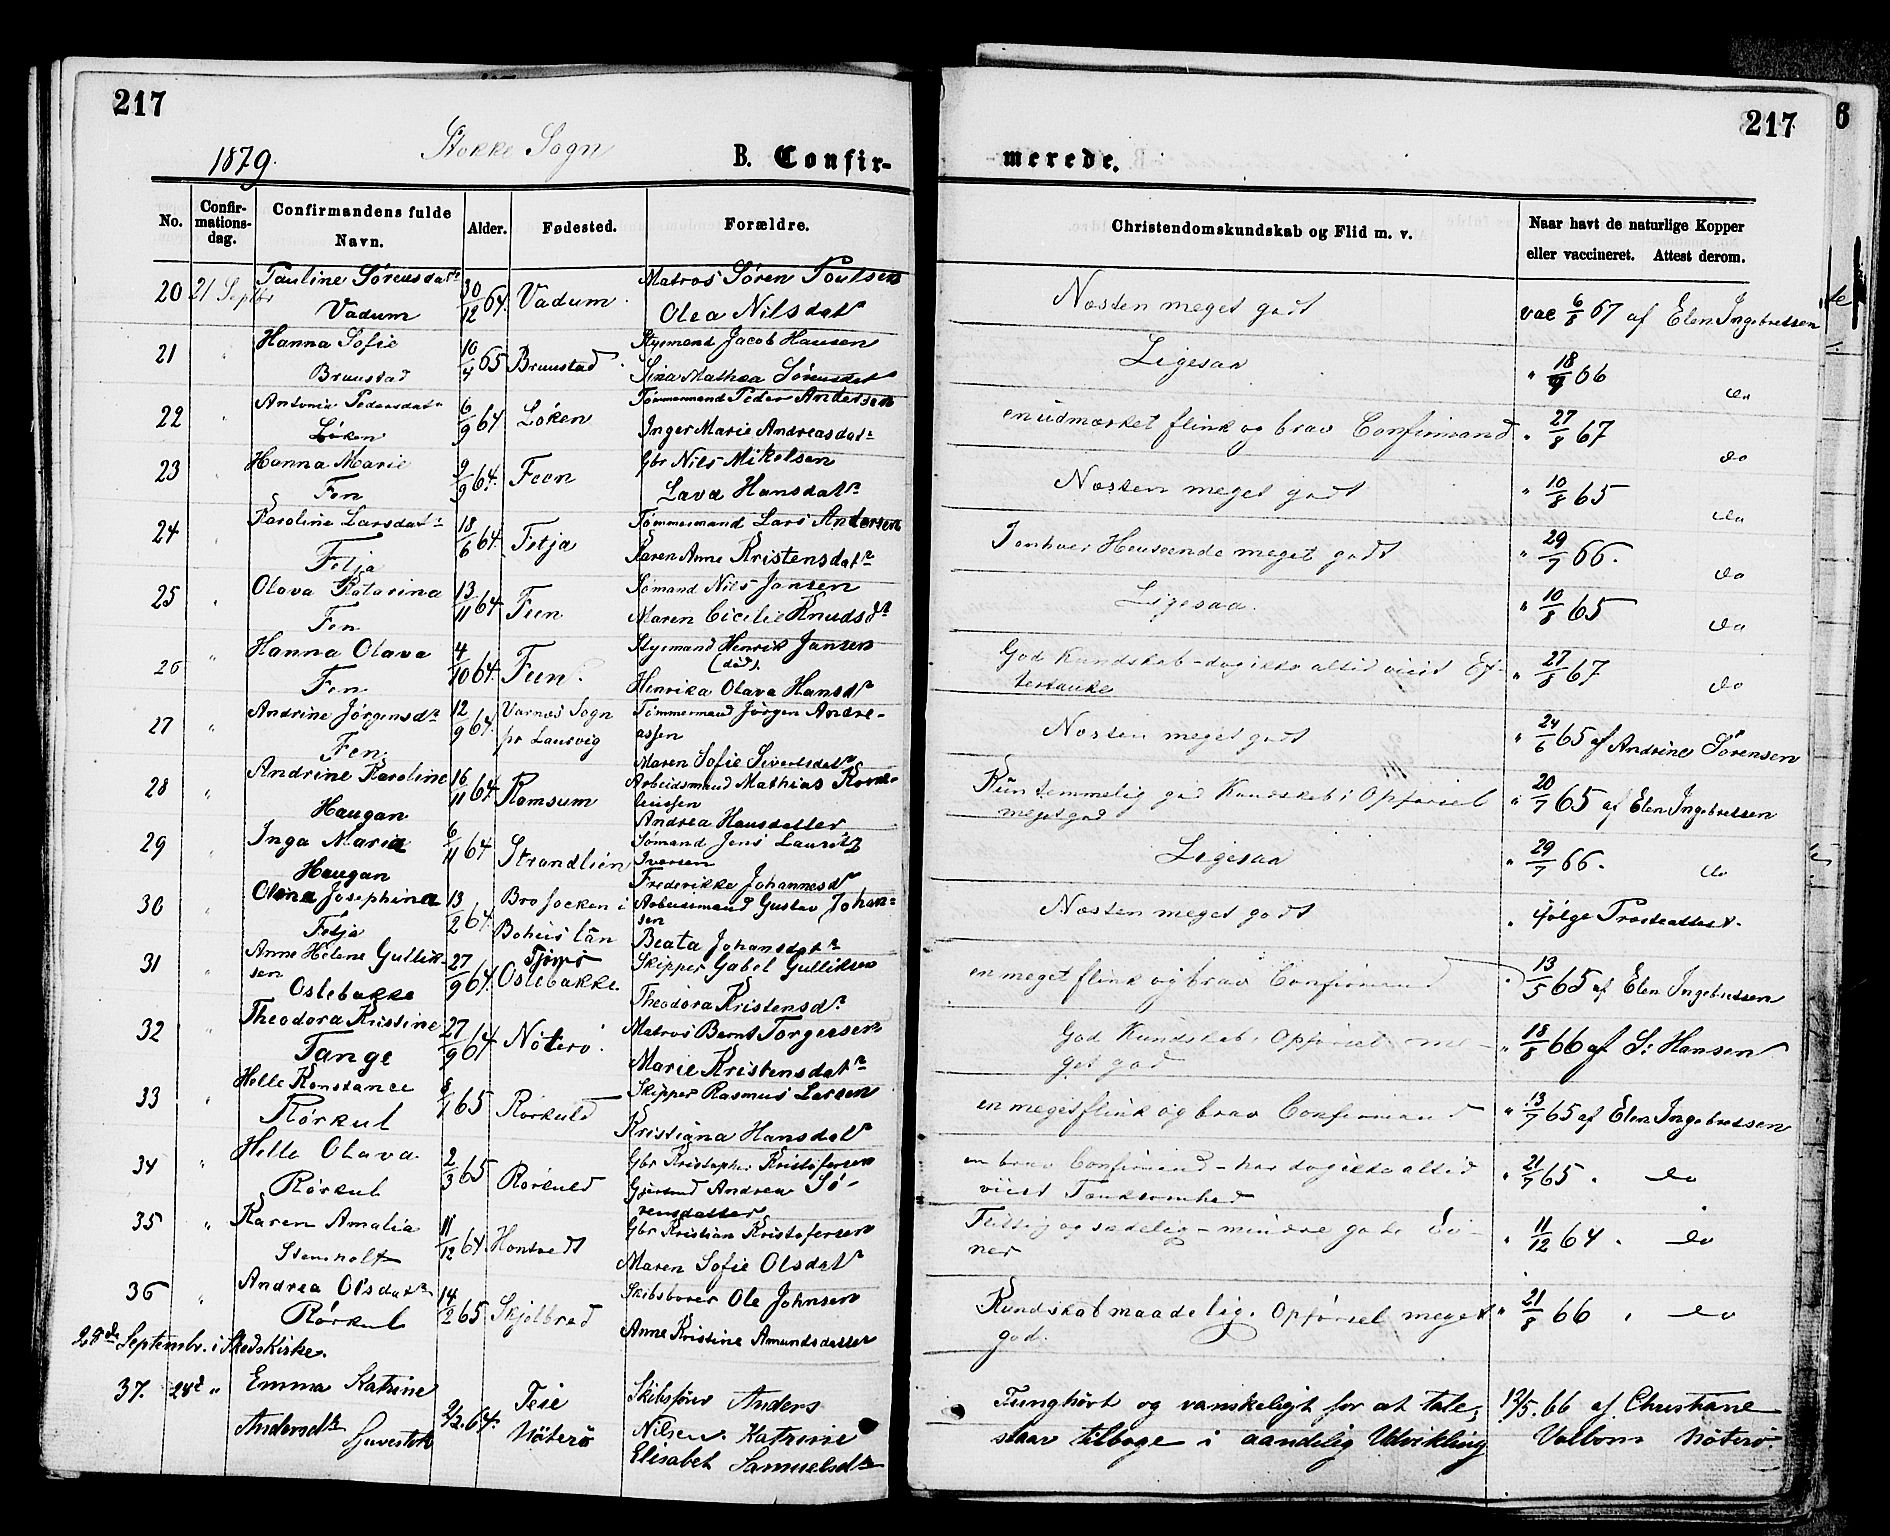 217
217
6
Stokke Sogn
1879.
B. Confir-
merede.
No.
Confir-
mations-
dag.
Confirmandens fulde
Navn.
Alder.
Fødested.
Forældre.
Christendomskundskab og Flid m. v.
Naar havt de naturlige Kopper
eller vaccineret. Attest derom.
20 21 Septbr Pauline Sørensdatr 30/12 64. Vadum. Matros Søren Poulsen
Vadum Olea Nilsdatr
Næsten meget godt vac 6/8 67 af Elen Ingebretsen
21 " Hanna Sofie 10/4 65 Brunstad. Styrmand Jacob Hansen
Brunstad Sina Mathea Sørensdatr
Ligesaa " 18/9 66 do
22 " Antonia Pedersdatr 6/9 64 Løken Tømmermand Peder Andersen
Løken Inger Marie Andreasdatr
en udmærket flink og brav Confirmand " 27/8 67 do
23 " Hanna Marie 9/9 64. Feen Gbr Nils Mikelsen
Fen Lava Hansdatr
Næsten meget godt " 10/8 65 do
24 " Karoline Larsdatr 18/6 64 Fetja Tømmermand Lars Andersen
Fetja Karen Anne Kristensdatr
I enhver Henseende meget godt " 29/7 66. do
25 " Olava Katarina 13/11 64 Feen Sømand Nils Jansen
Fen Maren Cicilie Knudsdr
Ligesaa. " 10/8 65 do
26 " Hanna Olava 4/10 64. Feen. Styrmand Henrik Jansen
(død).
Fen Henrika Olava Hansdr
God Kundskab - dog ikke altid viist Ef-
tertanke " 27/8 67 do
27 " Andrine Jørgensdr 12/9 64. Varnæs Sogn Tømmermand Jørgen Andre-
pr Laurvig assen
Fen. Maren Sofie Sivertsdatr
Næsten meget godt " 24/6 65 af Andrine Sørensen
28 " Andrine Karoline 16/11 64. Ramsum Arbeidsmand Mathias
Haugan Andrea Hansdatter
Kun temmelig god Kundskab i Opførsel
meget god " 20/7 65 af Elen Ingebretsen
29 " Inga Maria 6/11 64 Strandlien Sømand Jens Lauritz
Iversen
Haugan Frederikke Johannesdr
Ligesaa " 29/7 66. do
30 " Olina Josephina 13/2 64. Bro Socken i Arbeidsmand Gustav Johan-
sen
Fetja Bohus län Beata Johansdatr
Næsten meget godt " ifølge Præsteattest.
31 " Anne Helene Gullik- 27/9 64. Tjømø Skipper Gabel Gulliksen
sen Ostebakke Ostebakke Theodora Kristensdr
en meget flink og brav Confirmand " 13/5 65 af Elen Ingebretsen
32 " Theodora Kristine 27/9 64 Nøterø. Matros Bernt Torgersen
Tange Marie Kristensdatr
God Kundskab, Opførsel me-
get god " 18/8 66 af S: Hansen
33 " Helle Konstance 8/1 65 Rørkuld Skipper Rasmus Larsen
Rørkul Kristiana Hansdatr
en meget flink og brav Confirmand " 13/7 65 af Elen Ingebretsen
34 " Helle Olava 2/3 65 Rørkuld Gbr Kristopher Kristofersen
Rørkul Gjertrud Andrea Sø-
rensdatter
en brav Confirmand - har dog ikke altid
viist Tænksomhed " 21/7 65. do
35 " Karen Amalia 11/12 64 Hontvedt Gbr Kristian Kristofersen
Stenholt Maren Sofie Olsdatr
Flittig og sædelig - mindre gode Ev-
ner " 11/12 64. do
36 " Andrea Olsdatr 14/2 65 Skjelbred Skibsborer Ole Johnsen
Rørkul Anne Kristine Amundsdatter
Kundskab maadelig. Opførsel meget
god. " 21/8 66. do
25de Septembr. i Skeds Kirke.
37. 28d " Emma Katrine 9/2. 64. Teie Skibsfører Anders
Andersdtr Nøterø Nilsen. Katrine
Elisabet Samuelsdtr
Tunghørt og vanskeligt for at tale,
staar tilbage i aandelig Udvikling
12/5. 66 af Christiane
Valbom Nøterø.